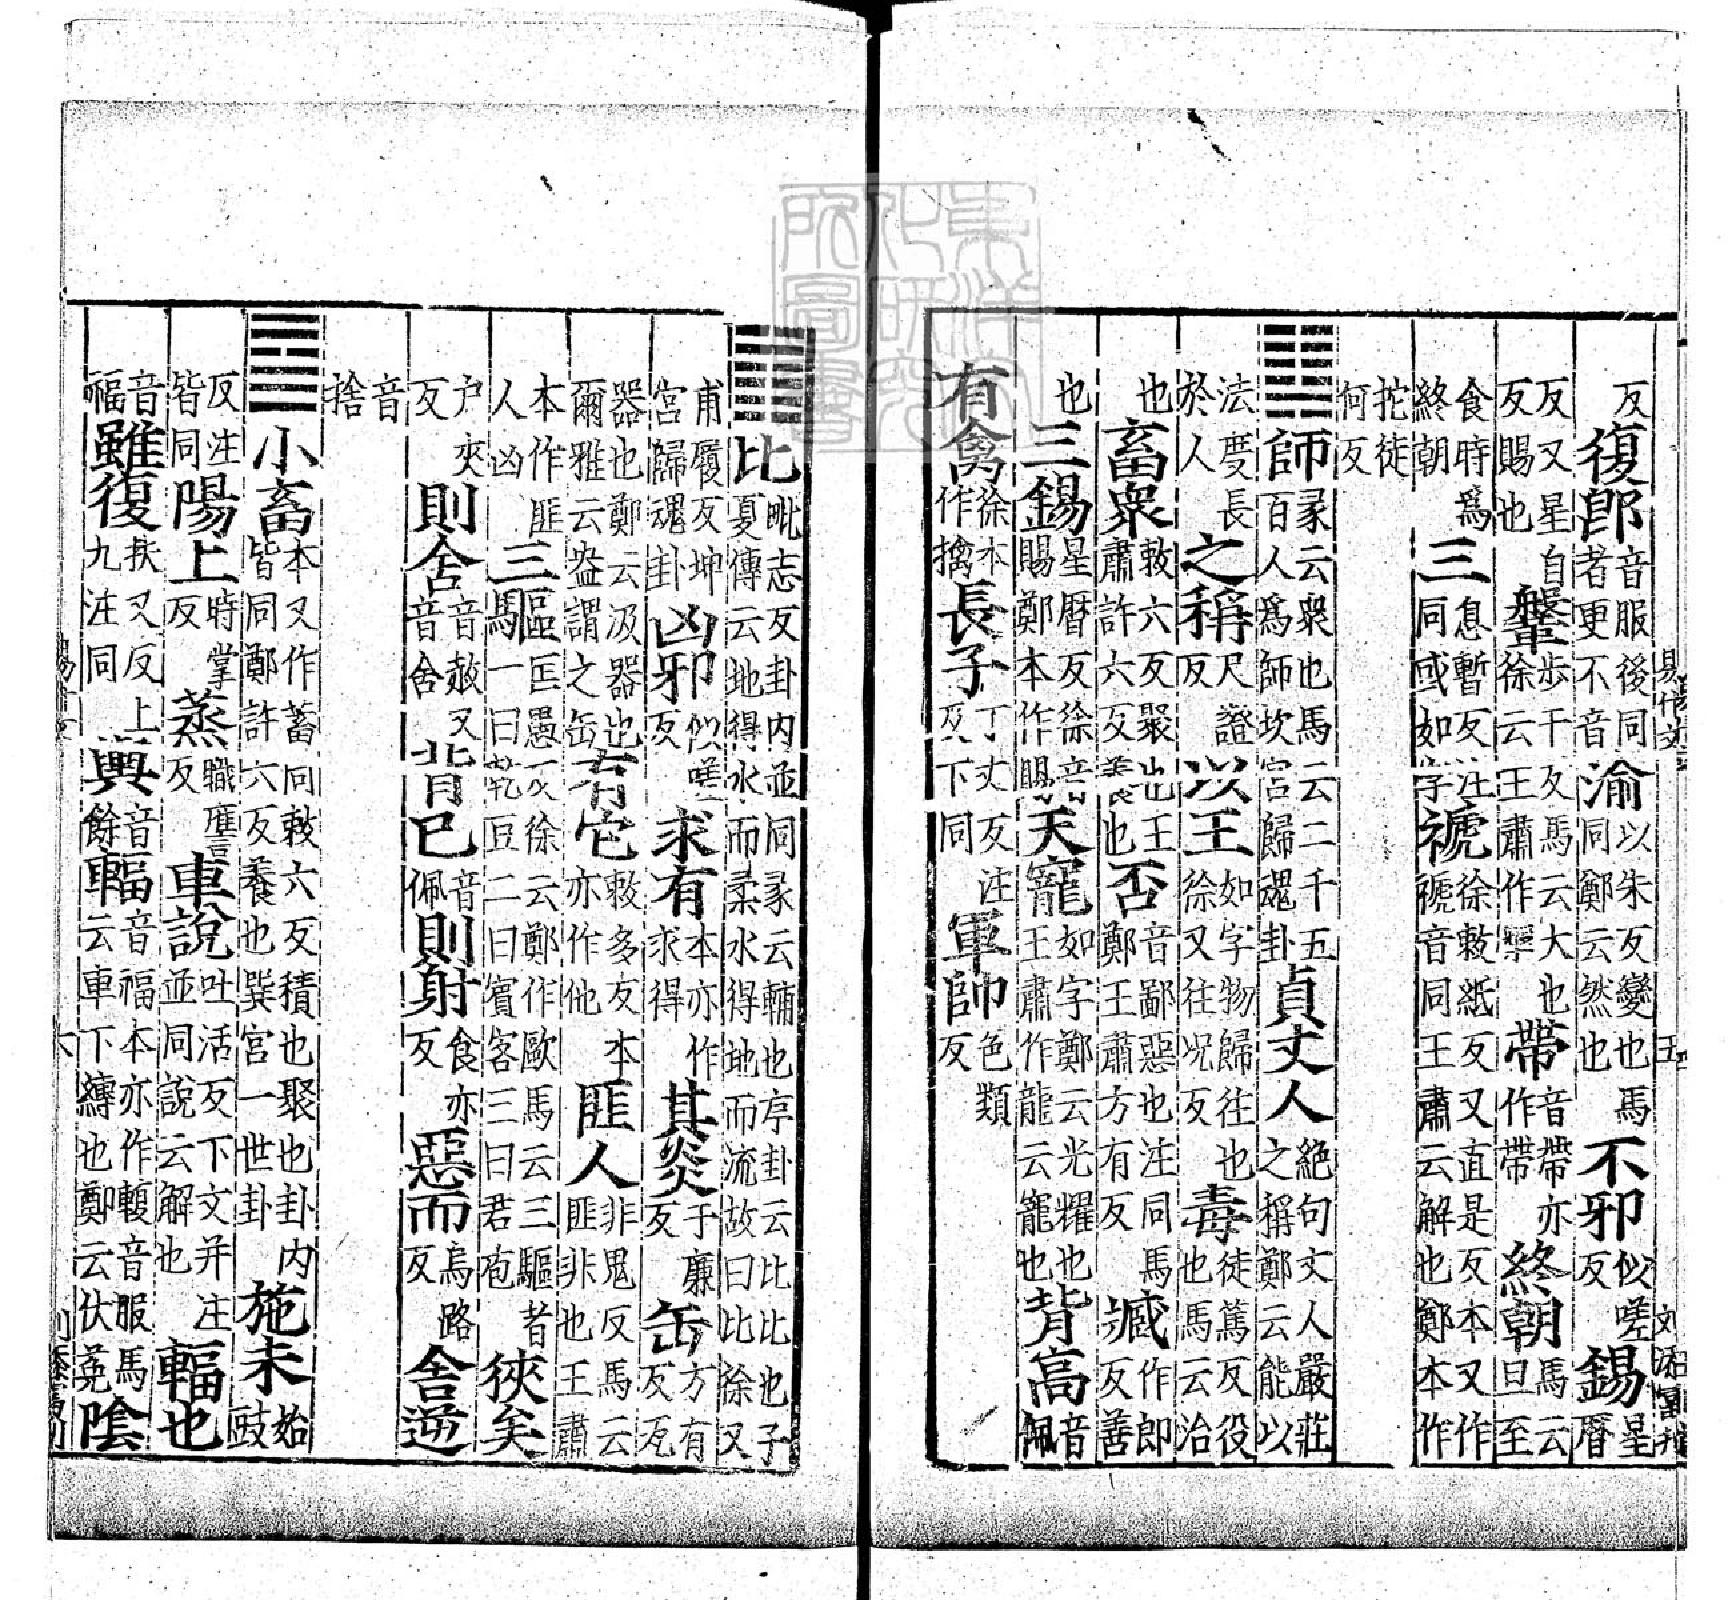 反復即音服後同者更不音渝以朱反變也馬同鄭云然也不邪似嗟反錫星曆
反又星自反賜也鞶步干反馬云大也徐云王肅作槃帶音帶亦作帶終朝馬云旦至
食時爲終朝三息暫反注同或如字褫徐敕紙反又直是反本又作褫音同王肅云解也鄭本作
拕徒何反
師彖云衆也馬云二千五百人爲師坎宮歸魂卦貞丈人絶句丈人嚴莊之稱鄭云能以
法度長於人之稱尺證反以王如字物歸往也徐又往況反毒徒篤反役也馬云治
也畜衆敕六反聚也王肅許六反養也否音鄙惡也注同馬鄭王肅方有反臧作郎反善
也三錫星曆反徐音賜鄭本作賜天寵如字鄭云光耀也王肅作龍云寵也背高音佩
有禽徐本作擒長子丁丈反注及下同軍帥色類反
比毗志反卦内並同彖云輔也序卦云比比也子夏傳云地得水而柔水得地而流故曰比徐又
甫履反坤宮歸魂卦凶邪似嗟反求有本亦作求得其炎于廉反缶方有反瓦
器也鄭云汲器也爾雅云盎謂之缶有它敕多反本亦作他匪人非鬼反馬云匪非也王肅
本作匪人凶三驅匡愚反徐云鄭作歐馬云三驅者一曰乾豆二曰賓客三曰君庖狹矣
户夾反則舍音赦又音舍背已音佩則射食亦反惡而烏路反舍逆
音捨
小畜本又作蓄同敕六反積也聚也卦内皆同鄭許六反養也巽宮一世卦施未始豉
反注皆同陽上時掌反蒸職膺反車說吐活反下文并注並同說云解也輻也
音福雖復扶又反上九注同輿音餘輻音福本亦作輹音服馬云車下縛也鄭云伏菟陰
六